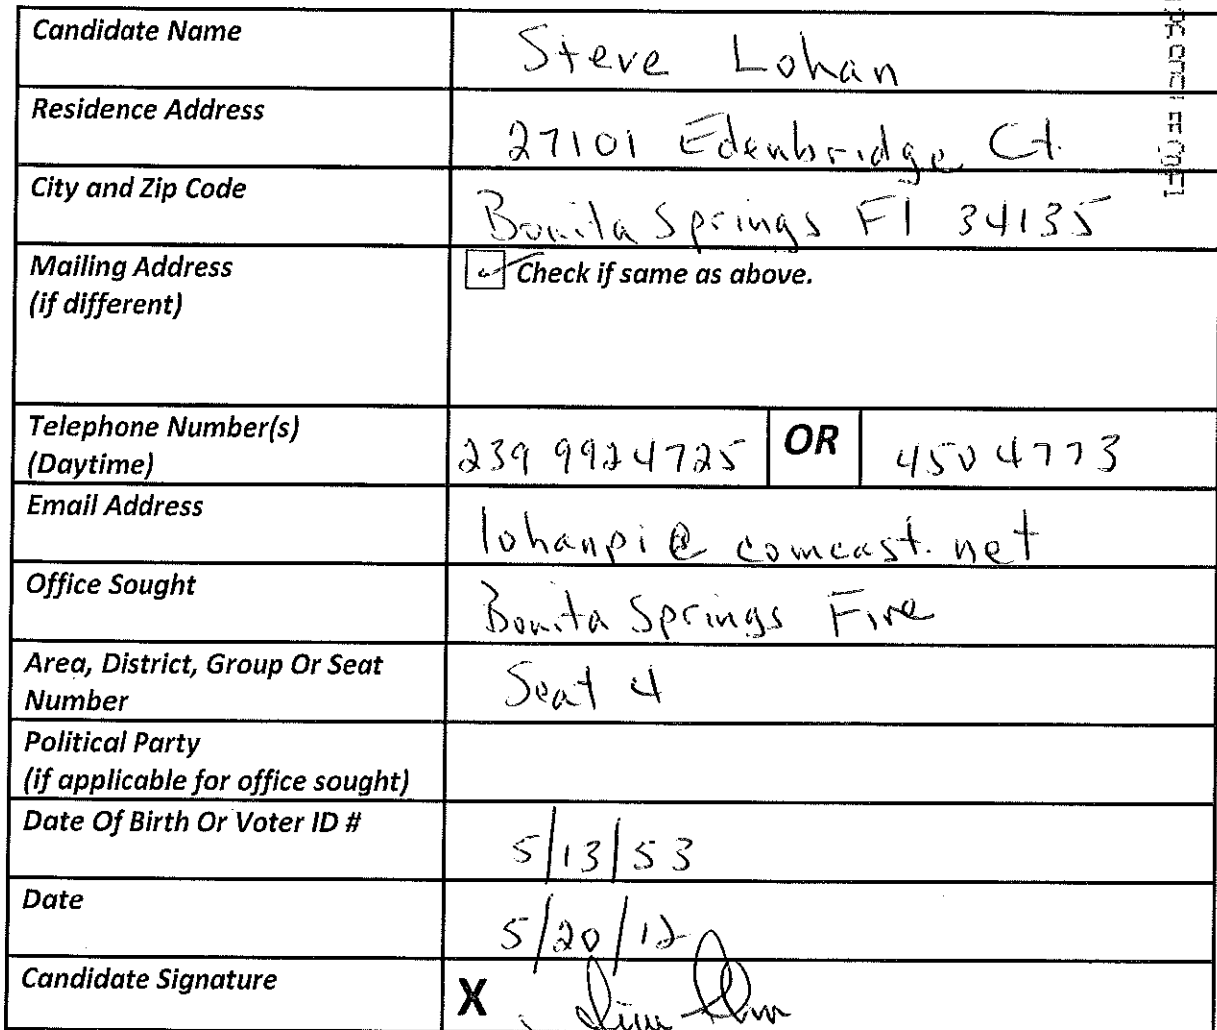 Candidate Name Steve Lohan
Residence Address 27101 Edenbridge Ct.
City and Zip Code Bonita Springs Fl 34135
Mailing Address Check if same as above.
(if different)
Telephone Number(s)
(Daytime) 239 9924725 OR 4504773
Email Address lohanpi@comcast.net
Office Sought Bonita Springs Fire
Area, District, Group Or Seat Seat 4
Number
Political Party
(if applicable for office sought)
Date Of Birth Or Voter ID # 5/13/53
Date 5/20/12
Candidate Signature X